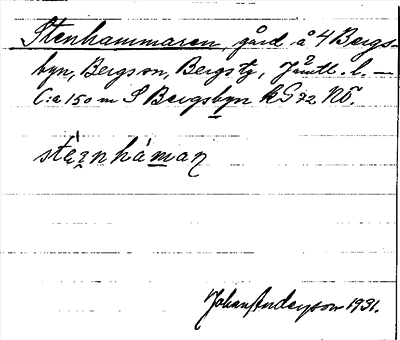 Stenhammaren, gård å 4 Bergs-
byn, Bergs sn, Bergs tg, Jämtl. l. —
C:a 150 m S Bergsbyn kG 32 NÖ.
stéi̯nháman
Johan Anderson 1931.